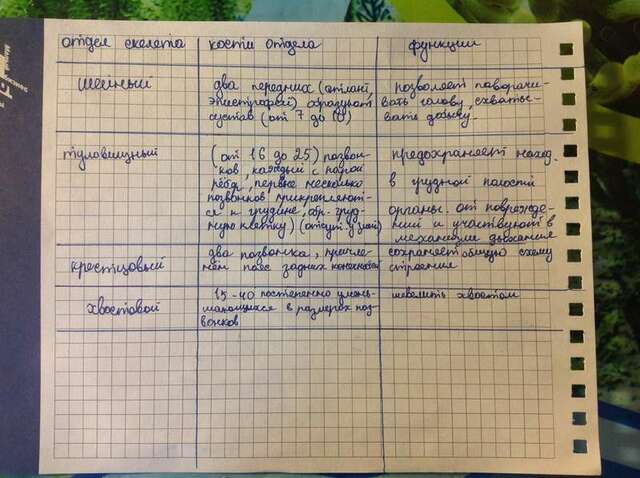 отдел скелета
кости отдела
функции
шейный
два передних (атлант,
эпистрофей) образуют
сустав (от 7 до 10)
позволяет поворачи-
вать голову, схваты-
вать добычу.
туловищный
(от 16 до 25) позвон-
ков, каждый с парой
рёбер, первые несколько
позвонков прикрепляют-
ся к грудине, обр. груд-
ную клетку) (отсут. у змей)
предохраняет наход.
в грудной полости
органы. от поврежде-
ний и участвуют в
механизме дыхания
крестцовый
два позвонка, причле-
нён пояс задних конечностей
сохраняет общую схему
строения
хвостовой
15-40 постепенно умень-
шающихся в размерах поз-
вонков
шевелить хвостом